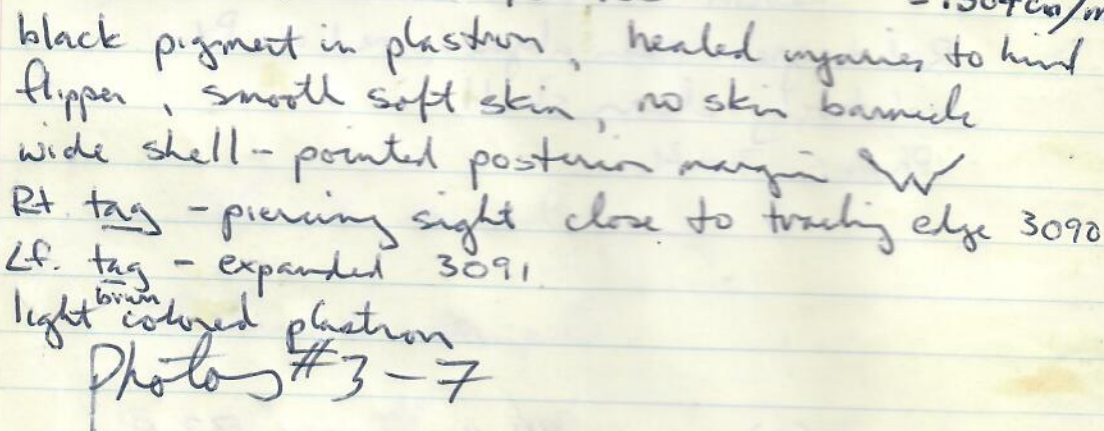 = .504 cm/m
black pigment in plastron, healed injuries to hind
flipper, smooth soft skin, no skin barnicle
wide shell - pointed posterion margin W
Rt. tag - piercing sight close to trailing edge 3090
Lf. tag - expanded 3091
light brown colored plastron
Photos #3-7